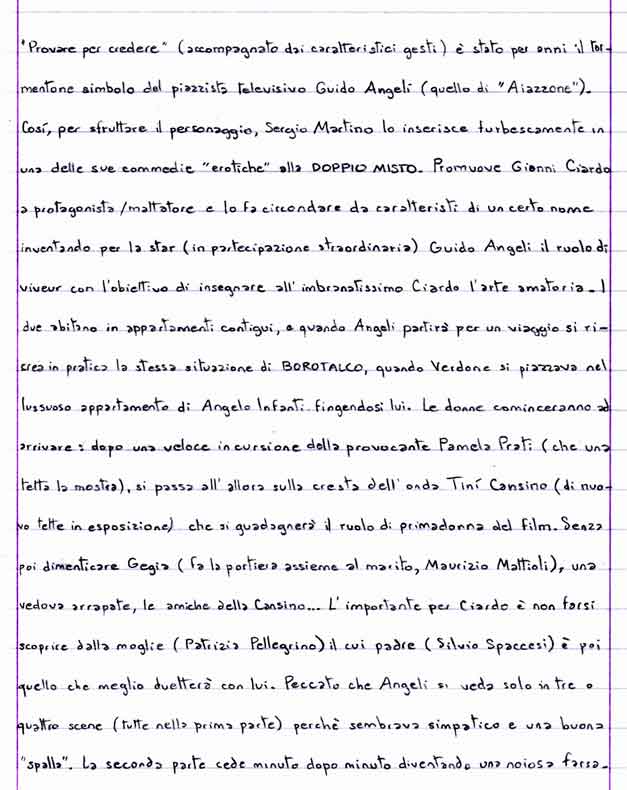 "Provare per credere" (accompagnato dai caratteristici gesti) è stato per anni il tor-
mentone simbolo del piazzista televisivo Guido Angeli (quello di "Aiazzone").
Così, per sfruttare il personaggio, Sergio Martino lo inserisce furbescamente in
una delle sue commedie "erotiche" alla DOPPIO MISTO. Promuove Gianni Ciardo
a protagonista/mattatore e lo fa circondare da caratteristi di un certo nome
inventando per la star (in partecipazione straordinaria) Guido Angeli il ruolo di
viveur con l'obiettivo di insegnare all'imbranatissimo Ciardo l'arte amatoria. I
due abitano in appartamenti contigui, e quando Angeli partirà per un viaggio si ri-
crea in pratica la stessa situazione di BOROTALCO, quando Verdone si piazzava nel
lussuoso appartamento di Angelo Infanti fingendosi lui. Le donne cominceranno ad
arrivare: dopo una veloce incursione della provocante Pamela Prati (che una
tetta la mostra), si passa all'allora sulla cresta dell'onda Tinì Cansino (di nuo-
vo tette in esposizione) che si guadagnerà il ruolo di primadonna del film. Senza
poi dimenticare Gegia (fa la portiera assieme al marito, Maurizio Mattioli), una
vedova arrapata, le amiche della Cansino... L'importante per Ciardo è non farsi
scoprire dalla moglie (Patrizia Pellegrino) il cui padre (Silvio Spaccesi) è poi
quello che meglio duetterà con lui. Peccato che Angeli si veda solo in tre o
quattro scene (tutte nella prima parte) perchè sembrava simpatico e una buona
"spalla". La seconda parte cede minuto dopo minuto diventando una noiosa farsa.